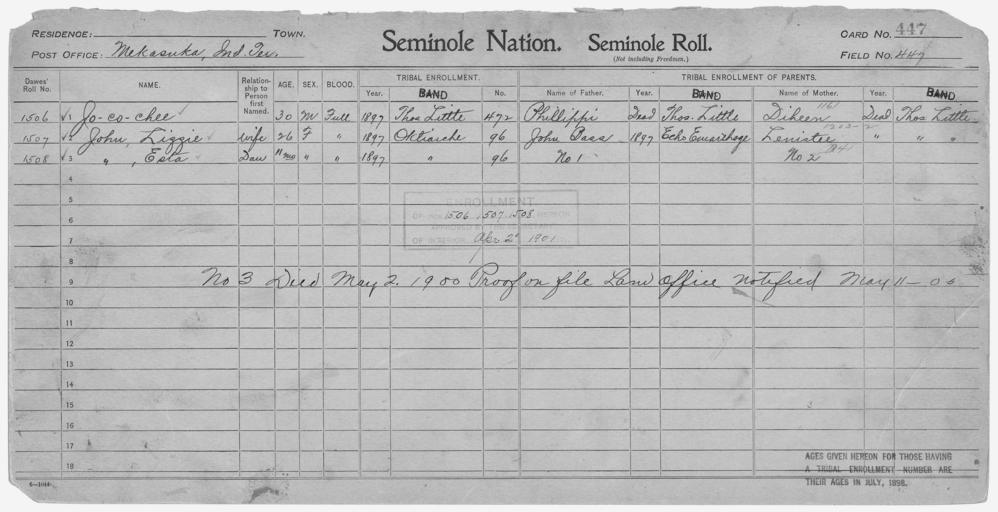 RESIDENCE: TOWN. Seminole Nation. Seminole Roll. CARD NO. 447
POST OFFICE: Mekasuka, Ind. Ter. (Not including Freedmen.) FIELD NO. 447
Dawes' Roll No. NAME. Relationship to Person first Named. AGE. SEX. BLOOD. TRIBAL ENROLLMENT. TRIBAL ENROLLMENT OF PARENTS.
Year. BAND No. Name of Father. Year. BAND Name of Mother. Year. BAND
1506 1 Jo-co-chee 30 M Full 1897 Thos Little 472 Phillippi Dead Thos. Little Diheen 1161 Died Thos Little
1507 2 John, Lizzie Wife 26 F " 1897 Oktiarche 96 John Bass 1897 Echo Emarthoge Lenistee " "
1508 3 " , Esta Dau 11 mo " " 1897 " 96 No 1 No 2
4
5
ENROLLMENT
6
OF NOS. 1506, 1507, 1508 HEREON
APPROVED BY
7
OF INTERIOR Apr. 2, 1901
8
9 No 3 Died May 2. 1900 Proof on file Land Office notified May 11 -
10
11
12
13
14
15 3
16
17
AGES GIVEN HEREON FOR THOSE HAVING
18 A TRIBAL ENROLLMENT NUMBER ARE
6-1044 THEIR AGES IN JULY, 1898.